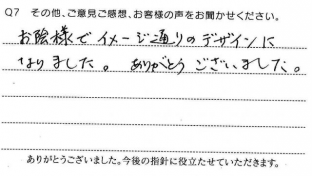 Q7 その他、ご意見ご感想、お客様の声をお聞かせください。
お陰様でイメージ通りのデザインに
なりました。 ありがとうございました。
ありがとうございました。今後の指針に役立たせていただきます。